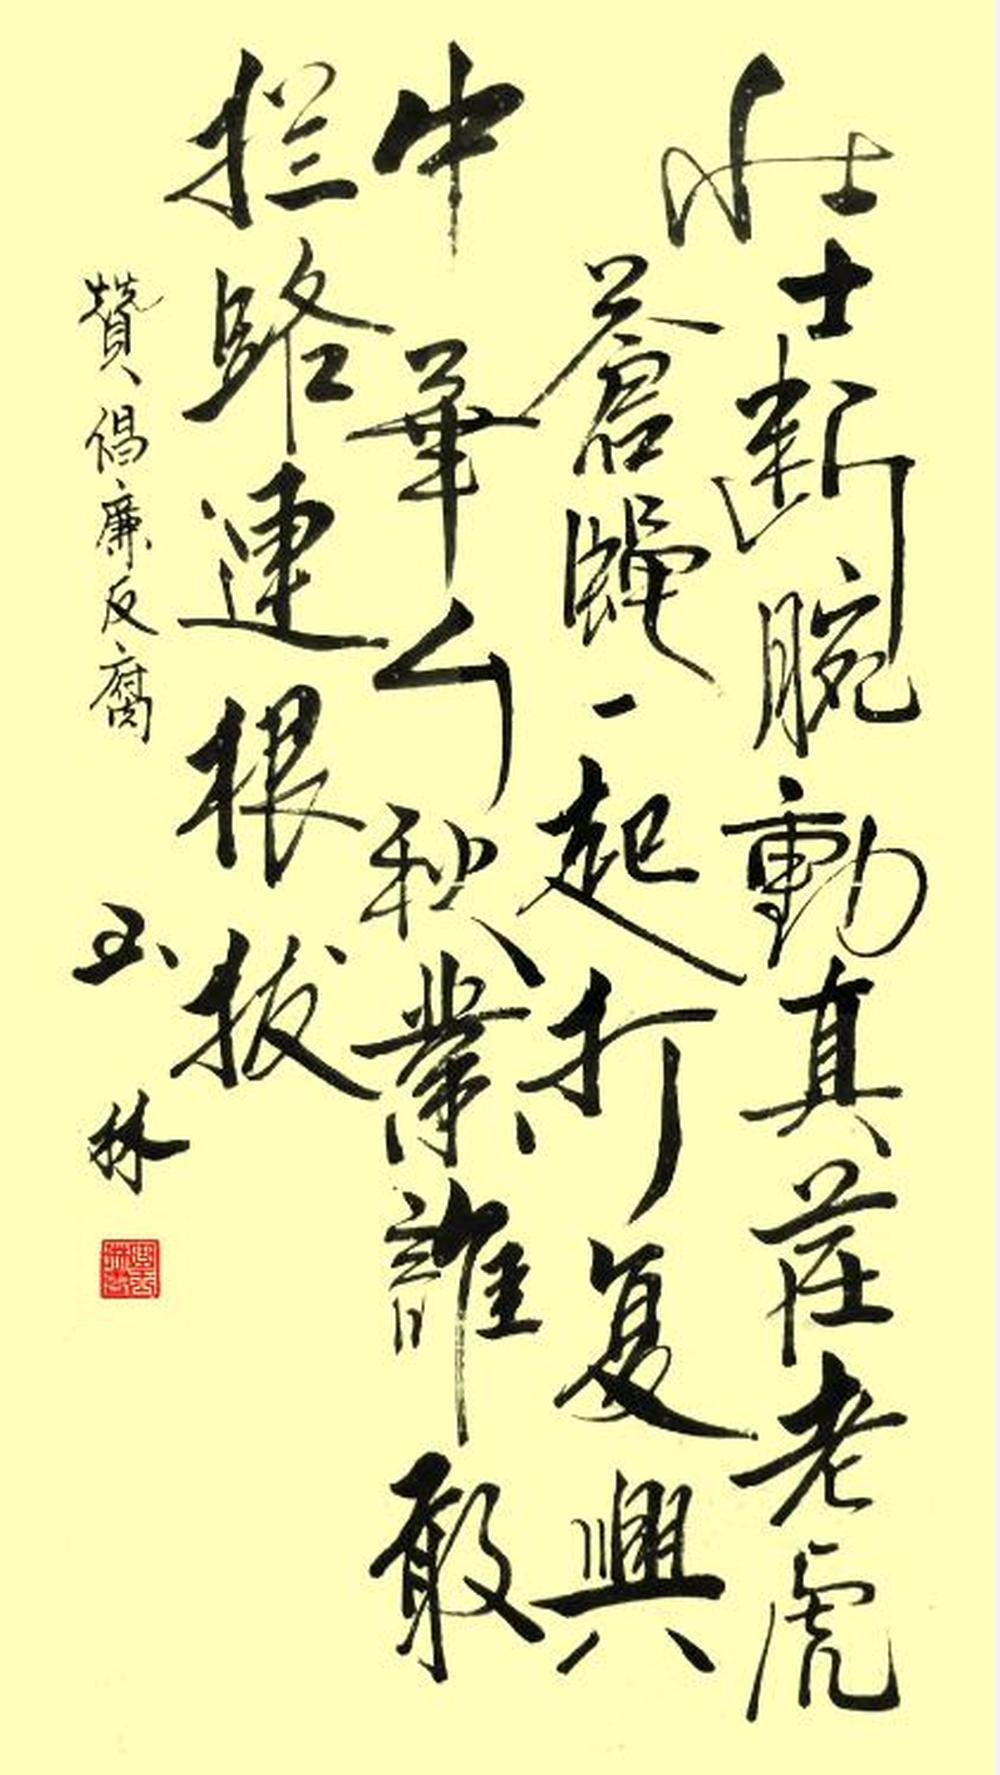 壮士断腕動真茬老虎
蒼蠅一起打复興
中華千秋業誰敢
拦路連根拔
贊倡廉反腐
玉林